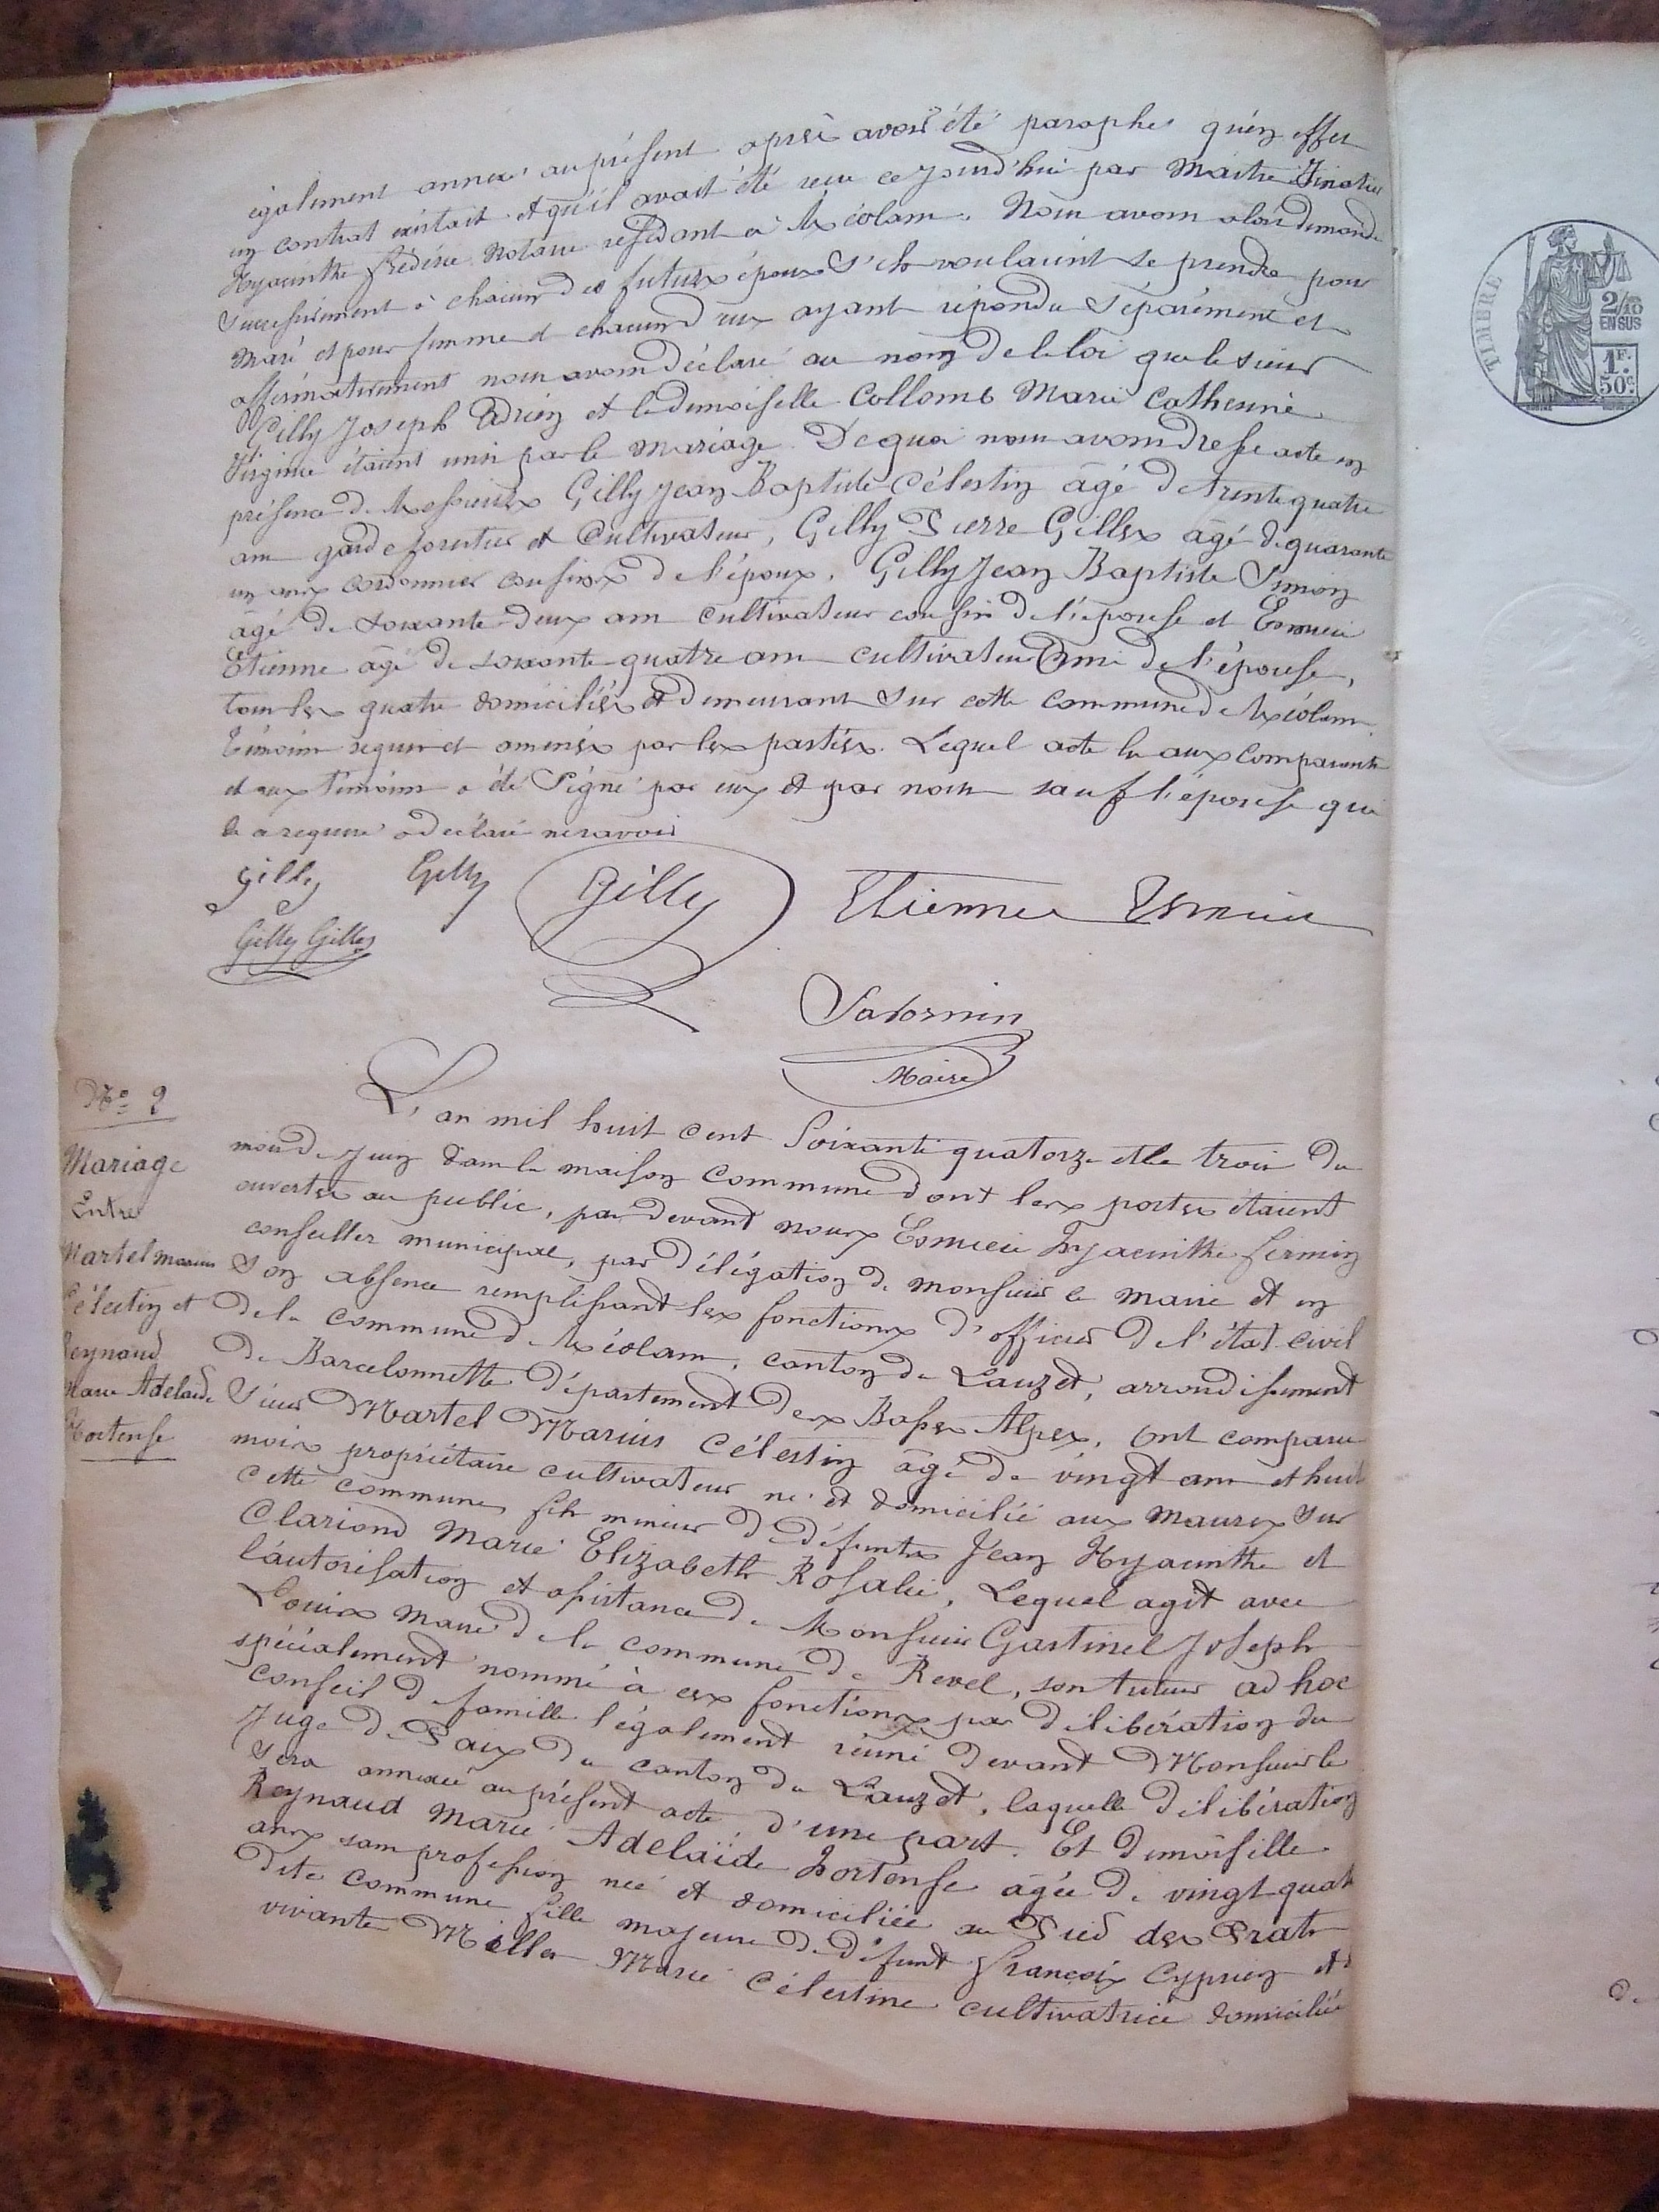 également annexé au présent après avoir été paraphé qu'en effet
un contrat existait et qu'il avait été recu ce jourd'hui par Maitre
Hyacinthe Frédéric Notaire résidant à Méolans. Nous avons alors demandé
successivement à chacun des futurs époux s'ils voulaient se prendre pour
Mari et pour femme et chacun d'eux ayant répondu séparément et
affirmativement nous avons déclaré au nom de la loi que le sieur
Gilly Joseph Adrien et la demoiselle Collomb Marie Catherine
Virginie étaient unis par le Mariage. De quoi nous avons dressé acte en
présence de Messieurs Gilly Jean Baptiste Célestin âgé de trente quatre
ans garde forestier et Cultivateur, Gilly Pierre Gilles âgé de quarante
un ans cordonnier cousins de l'époux, Gilly Jean Baptiste Simon
âgé de soixante-deux ans cultivateur cousin de l'épouse et Esmieu
Etienne âgé de soixante-quatre ans cultivateur ami de l'épouse,
tous les quatre domiciliés et demeurant sur cette commune de Méolans.
témoins requis et amenés par les parties. Lequel acte lu aux comparants
et aux témoins a été signé par eux et par nous sauf l'épouse qui
de ce requise a déclaré ne savoir
Gilly Gilly Gilly Etienne Esmieu
Gilly Gilles
Satornin
Maire
N° 2
Mariage
Entre
Martel Marius
Célestin et
Reynaud
Marie Adelaide
Hortense
L'an mil huit cent soixante quatorze et le trois du
mois de Juin dans la maison commune dont les portes étaient
ouvertes au public, par devant nous Esmieu Hyacinthe Firmin
conseiller municipal, par délégation de monsieur le maire et en
son absence remplissant les fonctions d'officier de l'état civil
de la commune de Méolans, canton du Lauzet, arrondissement
de Barcelonnette département des Basses Alpes, ont comparu
Sieur Martel Marius Célestin âgé de vingt ans et huit
mois propriétaire cultivateur né et domicilié aux Maures sur
cette commune, fils mineur de défunts Jean Hyacinthe et
Clariond Marie Elizabeth Rosalie, Lequel agit avec
l'autorisation et assistance de Monsieur Gastinel Joseph
Louis Maire de la commune de Revel, son tuteur ad hoc
spécialement nommé à ces fonctions par délibération du
conseil de famille légalement réuni devant Monsieur le
Juge de Paix du canton du Lauzet, laquelle délibération
sera annexée au présent acte, d'une part. Et demoiselle
Reynaud Marie Adelaïde Hortense âgée de vingt quatre
ans sans profession née et domiciliée au Pied des Prats
dite commune fille majeure de défunt François Cyprien et de
vivante Marie Célestine cultivatrice domiciliée
TIMBRE
2/10
EN SUS
1F.
50c.